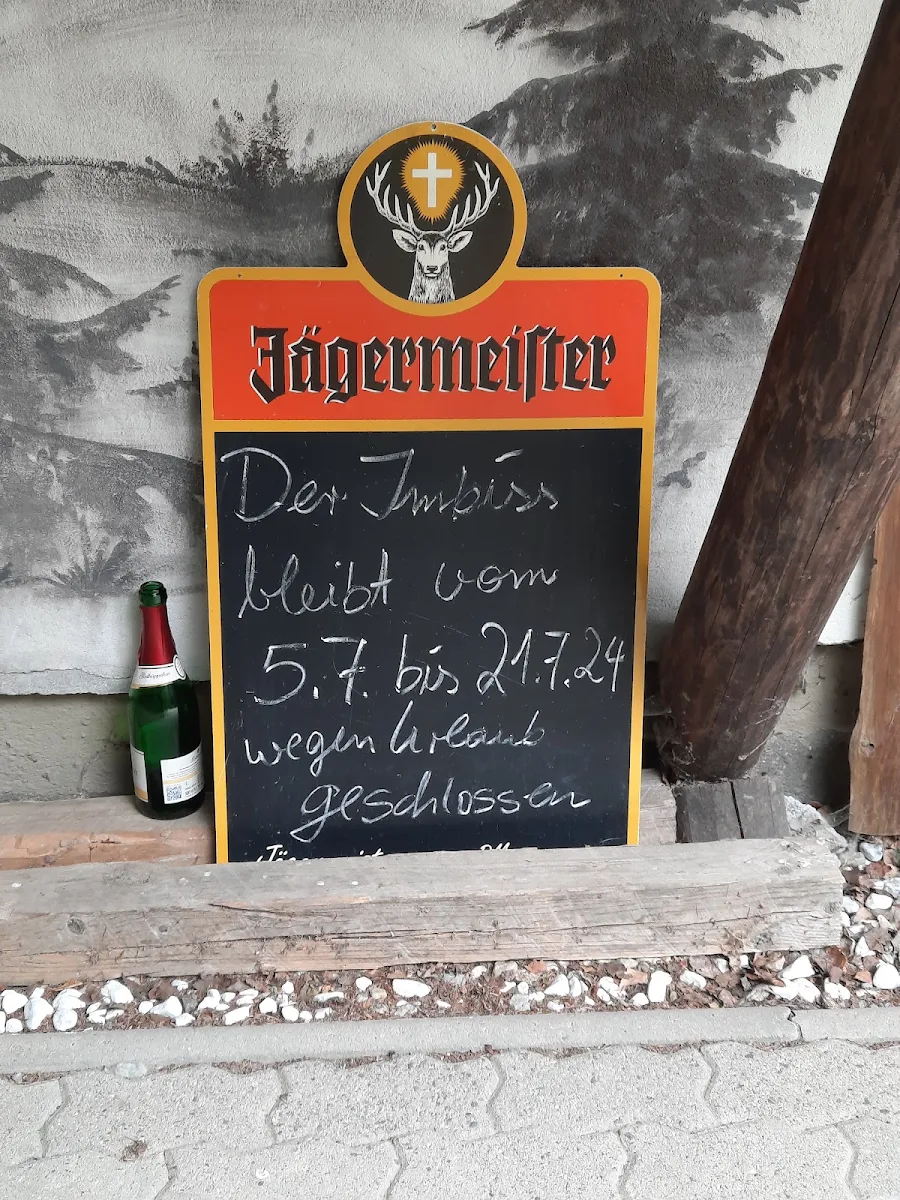 Jägermeiſter
Der Imbiss
bleibt vom
5.7. bis 21.7.24
wegen Urlaub
geschlossen